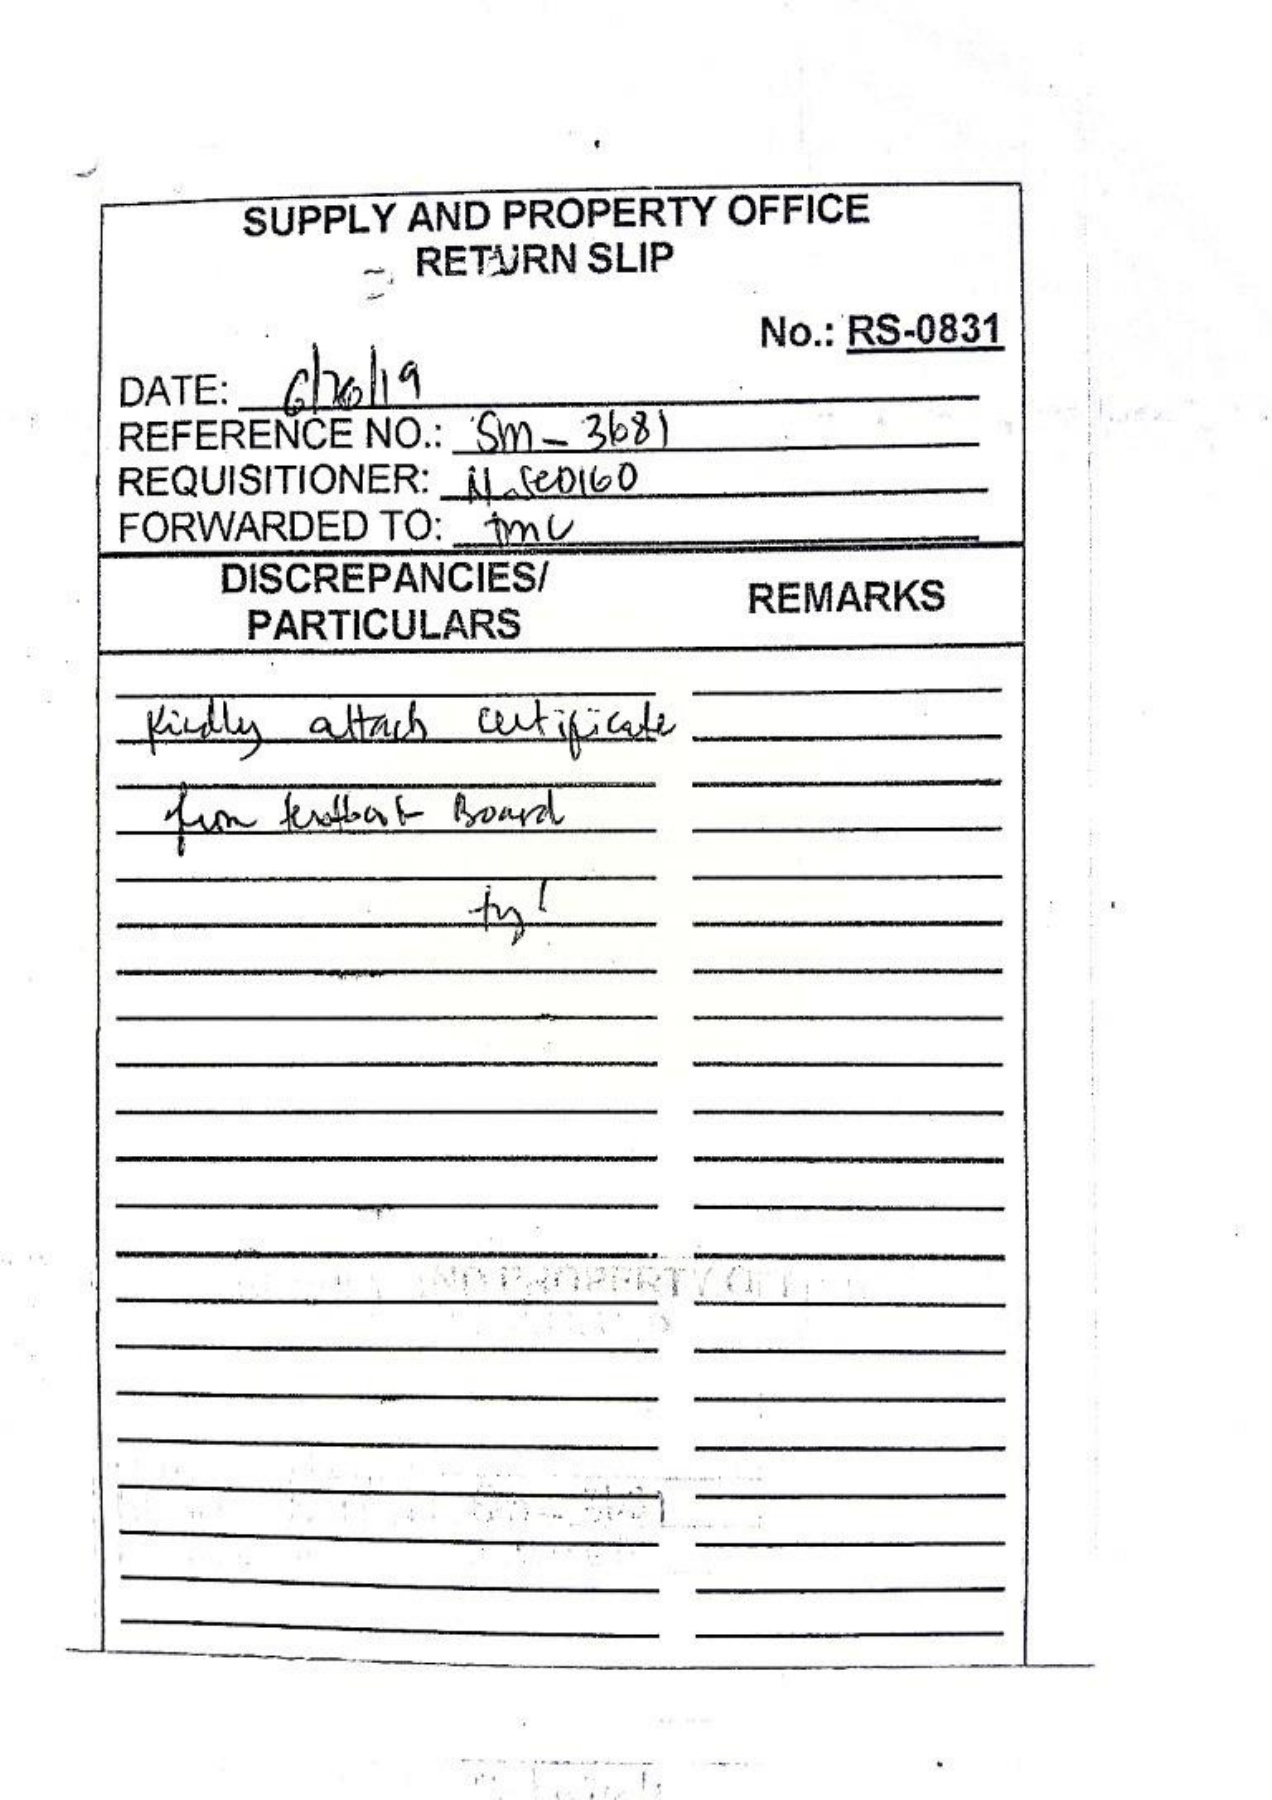 SUPPLY AND PROPERTY OFFICE
RETURN SLIP
No.: RS-0831
DATE: 6/26/19
REFERENCE NO.: SM - 3681
REQUISITIONER:
FORWARDED TO: TMC
DISCREPANCIES/
PARTICULARS
REMARKS
Kindly attach certificate
from Board
ty!